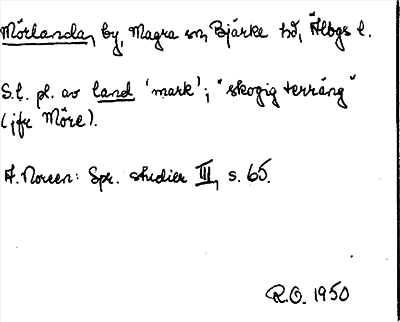 Mörlanda, by, Magra sn, Bjärke hd, Älvbgs l.
S.l. pl. av land 'mark'; "skogig terräng"
(jfr Möre).
A. Noreen: Spr. studier III, s. 65.
R.O. 1950